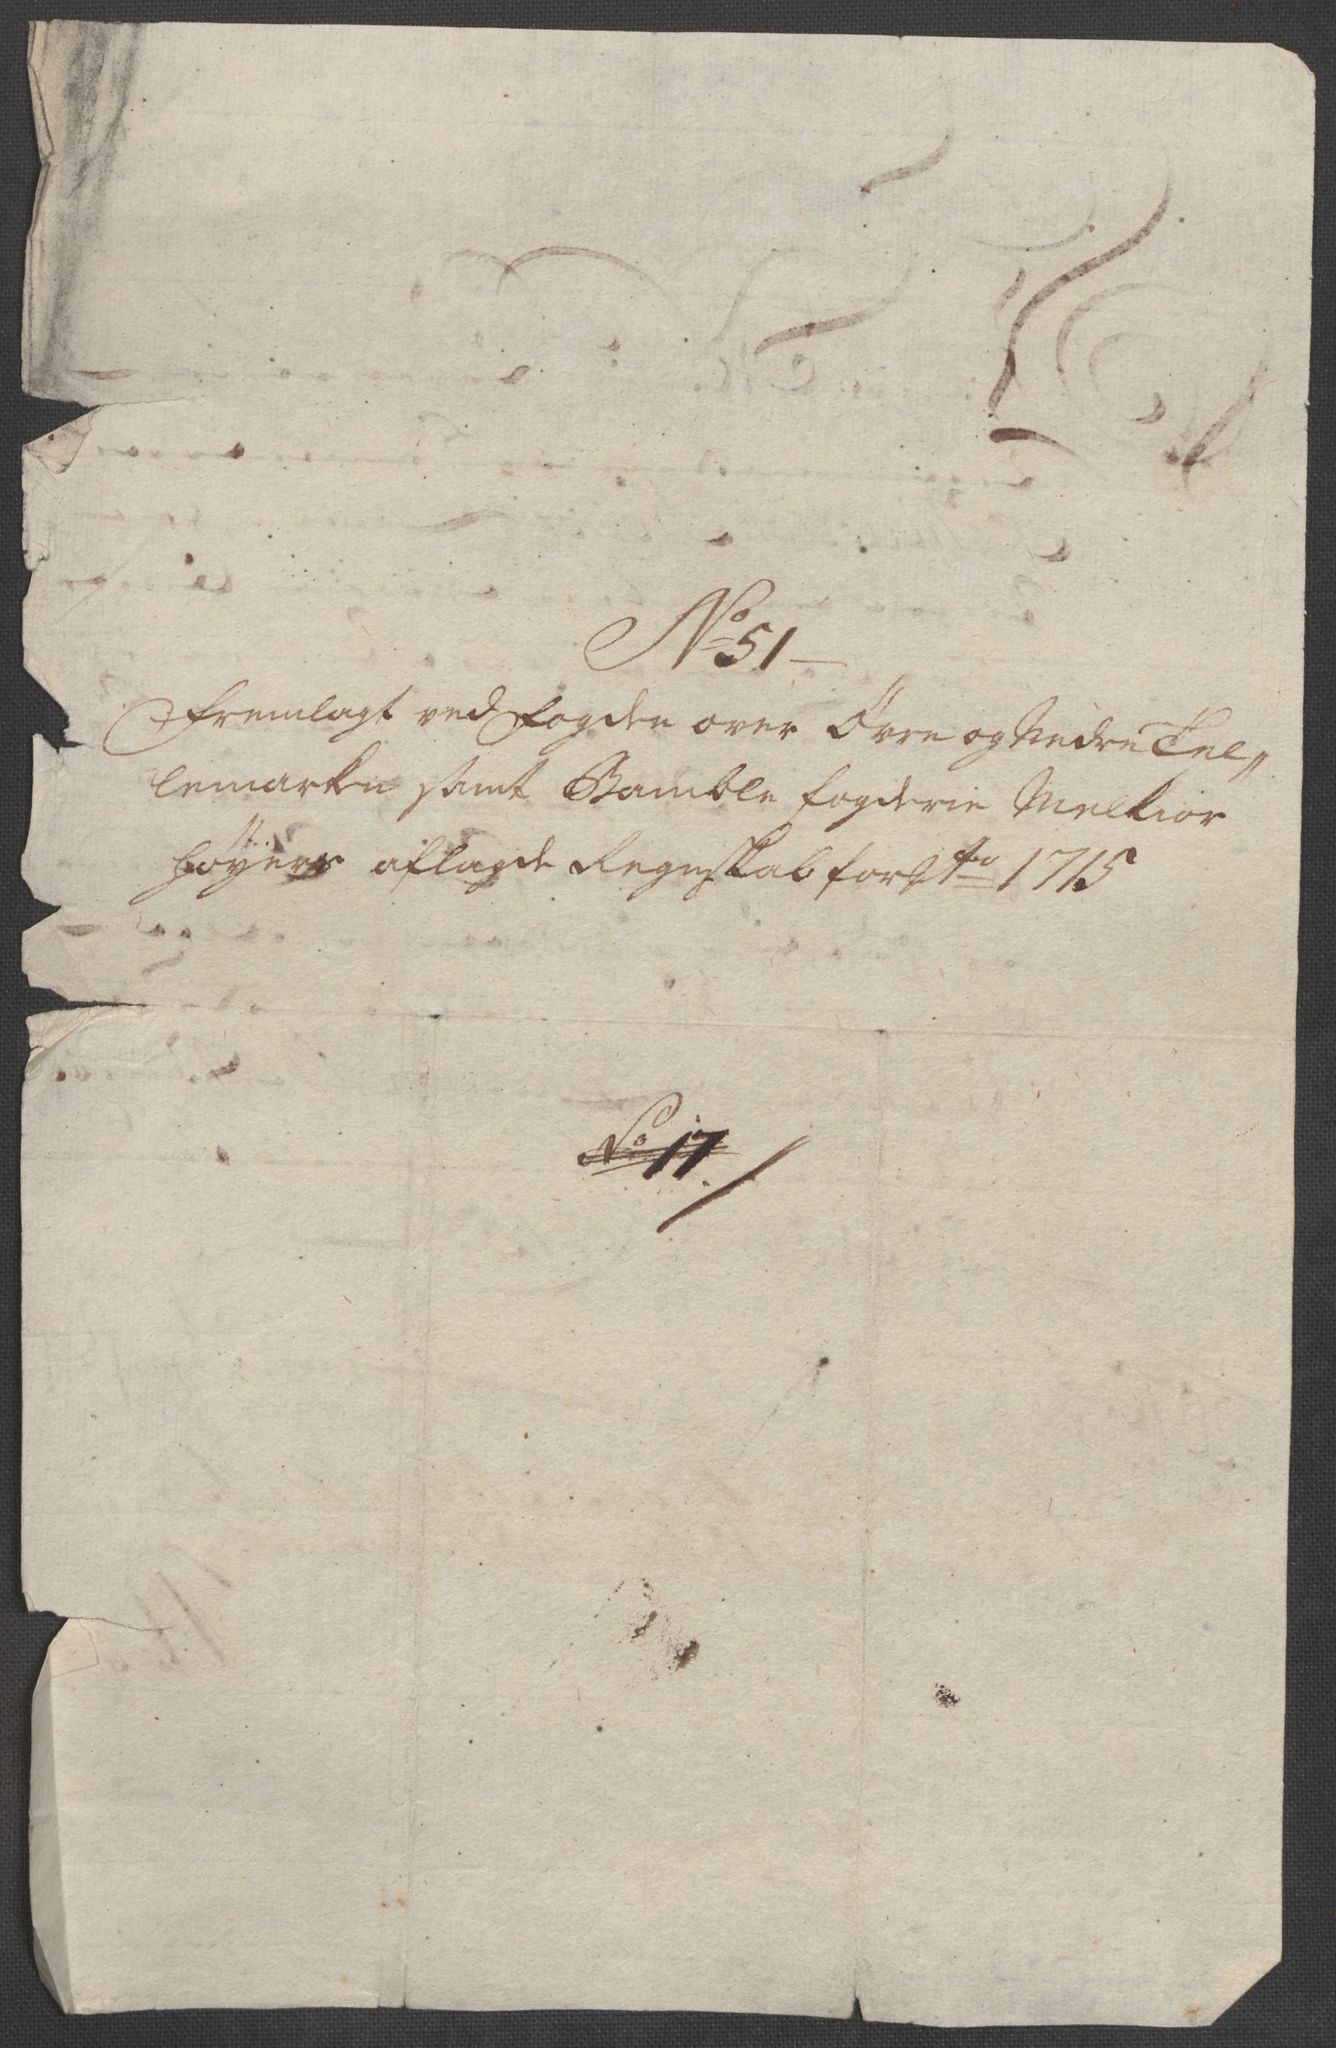 No 51
Fremlagt ved Fogden over Øvre og Nedre Tel„
lemarken samt Bamble fogderie Melkior
Høyers aflagde Regnskab for Ao 1715
No 17